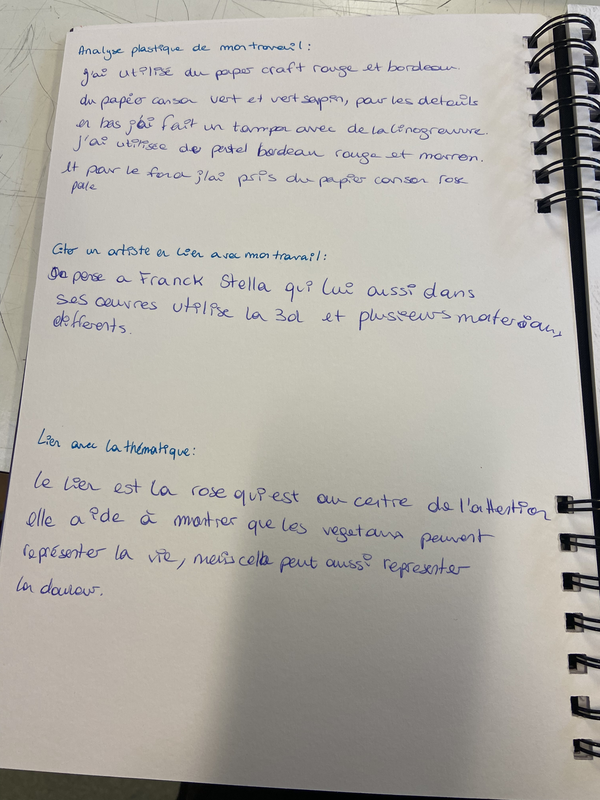 Analyse plastique de mon travail:
j'ai utilisé du paper craft rouge et bordeau.
du papéo canson vert et vert sapin, pour les details
en bas j'ai fait un tampon avec de la linogravure.
j'ai utilisée de pastel bordeau rouge et marron.
et pour le fond j'ai pris du papier canson rose
pale
Citer un artiste en lien avec mon travail:
Je pense a Franck Stella qui lui aussi dans
ses œuvres utilise la 3d et plusieurs materiaux
différents.
Lien avec la thématique:
le lien est la rose qui est au centre de l'attention
elle aide à montrer que les vegetaux peuvent
représenter la vie, mais cella peut aussi représenter
la douleur.